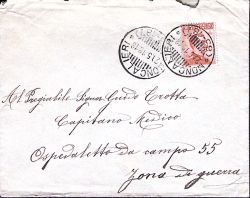 MONCALIERI
MONCALIERI
Al Pregiatile Signor Guido Crotta
Capitano Medico
Ospedaletto da campo 55
Zona di guerra